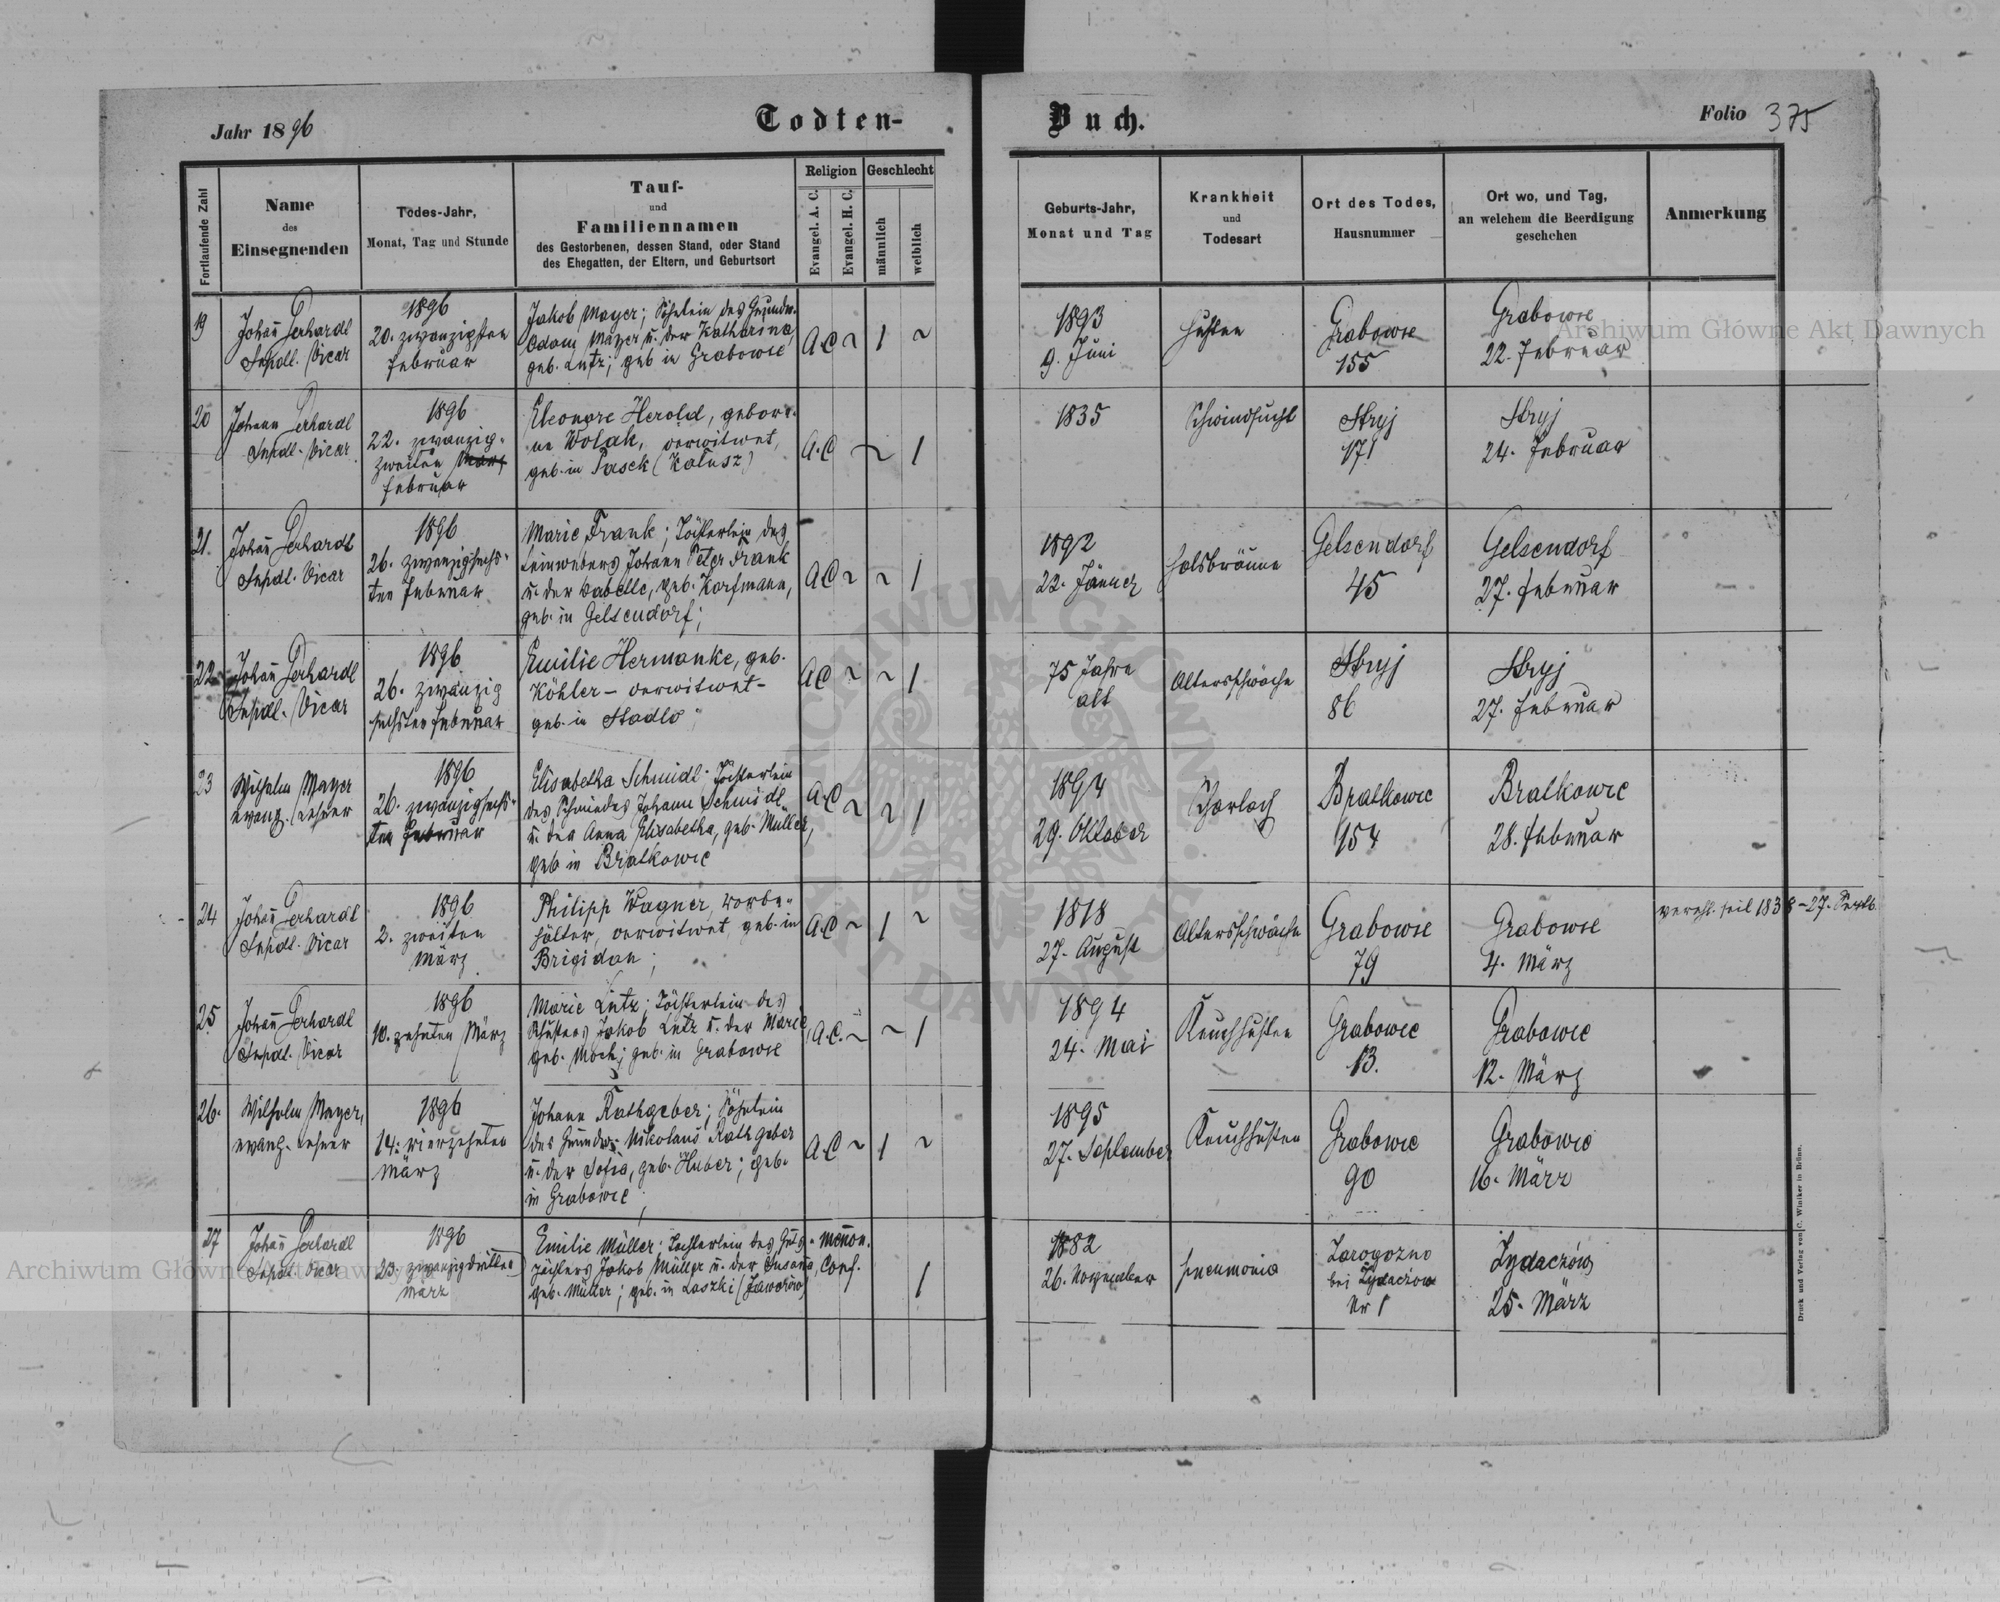 Jahr 1896
Todten-
Buch.
Folio 375
Fortlaufende Zahl
Name
des
Einsegnenden
Todes-Jahr,
Monat, Tag und Stunde
Tauf-
und
Familiennamen
des Gestorbenen, dessen Stand, oder Stand
des Ehegatten, der Eltern, und Geburtsort
Religion
Evangel. A. C.
Evangel. H. C.
Geschlecht
männlich
weiblich
Geburts-Jahr,
Monat und Tag
Krankheit
und
Todesart
Ort des Todes,
Hausnummer
Ort wo, und Tag,
an welchem die Beerdigung
geschehen
Anmerkung
19
Johann Gerhardt
Vicar
1896
20. zwanzigsten
Februar
Jakob Mayer; Söhnlein des Grundw.
Adam Mayer u. der Katharina,
geb. Lutz; geb in Grabowce
A.C ~ 1 ~
1893
9. Juni
Husten
Grabowce
155
Grabowce
22. Februar
20
Johann Gerhardt
Vicar
1896
22. zwanzig-
zweiten März
Februar
Eleonore Herold, gebore-
ne Wolak, verwitwet,
geb. in Pasek (Kalusz)
A.C ~ 1
1835
Schwindsucht
Stryj
171
Stryj
24. Februar
21.
Johann Gerhardt
Vicar
1896
26. zwanzigsechs-
ten Februar
Marie Frank; Töchterlein des
Leinwebers Johann Peter Frank
u. der Isabelle, geb. Korfmann,
geb. in Gelsendorf;
A.C ~ ~ 1
1892
22. Jänner
Halsbräune
Gelsendorf
45
Gelsendorf
27. Februar
22
Johann Gerhardt
Vicar
1896
26. zwanzig
sechsten Februar
Emilie Hermanke, geb.
Köhler - verwitwet -
geb. in Stadlo;
A.C ~ ~ 1
75 Jahre
alt
Altersschwäche
Stryj
86
Stryj
27. Februar
23
Wilhelm Mayer
evang. Lehrer
1896
26. zwanzigsechs-
ten Februar
Elisabetha Schmidt; Töchterlein
des Schmiedes Johann Schmidt
u. der Anna Elisabetha, geb. Müller,
geb in Bratkowce
A.C ~ ~ 1
1894
29. Oktober
Scharlach
Bratkowce
154
Bratkowce
28. Februar
24
Johann Gerhardt
Vicar
1896
2. zweiten
März
Philipp Wagner, Vorbe-
hälter, verwitwet, geb. in
Brigidau;
A.C ~ 1 ~
1818
27. August
Altersschwäche
Grabowce
79
Grabowce
4. März
verehl. seit 1838 - 27. Septb.
25
Johann Gerhardt
Vicar
1896
10. zehnten März
Marie Lutz; Töchterlein des
Schusters Jakob Lutz u. der Marie,
geb. Moch; geb. in Grabowce
A.C. ~ ~ 1
1894
24. Mai
Keuchhusten
Grabowce
13.
Grabowce
12. März
26.
Wilhelm Mayer,
evang. Lehrer
1896
14. vierzehnten
März
Johann Rathgeber; Söhnlein
des Grundw. Nikolaus Rathgeber
u. der Sofia, geb. Huber; geb.
in Grabowce;
A.C ~ 1 ~
1895
27. September
Keuchhusten
Grabowce
90
Grabowce
16. März
27
Johann Gerhardt
Vicar
1896
23. zwanzigdritten
März
Emilie Müller; Töchterlein des Guts-
pächters Jakob Müller u. der Susana,
geb. Müller; geb. in Laszki (Jaworow)
Menon.
Conf.
1
1882
26. November
Pneumonia
Zarogozno
bei Zydaczow
Nr 1
Zydaczów
25. März
Druck und Verlag von C. Winiker in Brünn.
Archiwum Główne Akt Dawnych
Archiwum Główne Akt Dawnych
ARCHIWUM GŁÓWNE AKT DAWNYCH